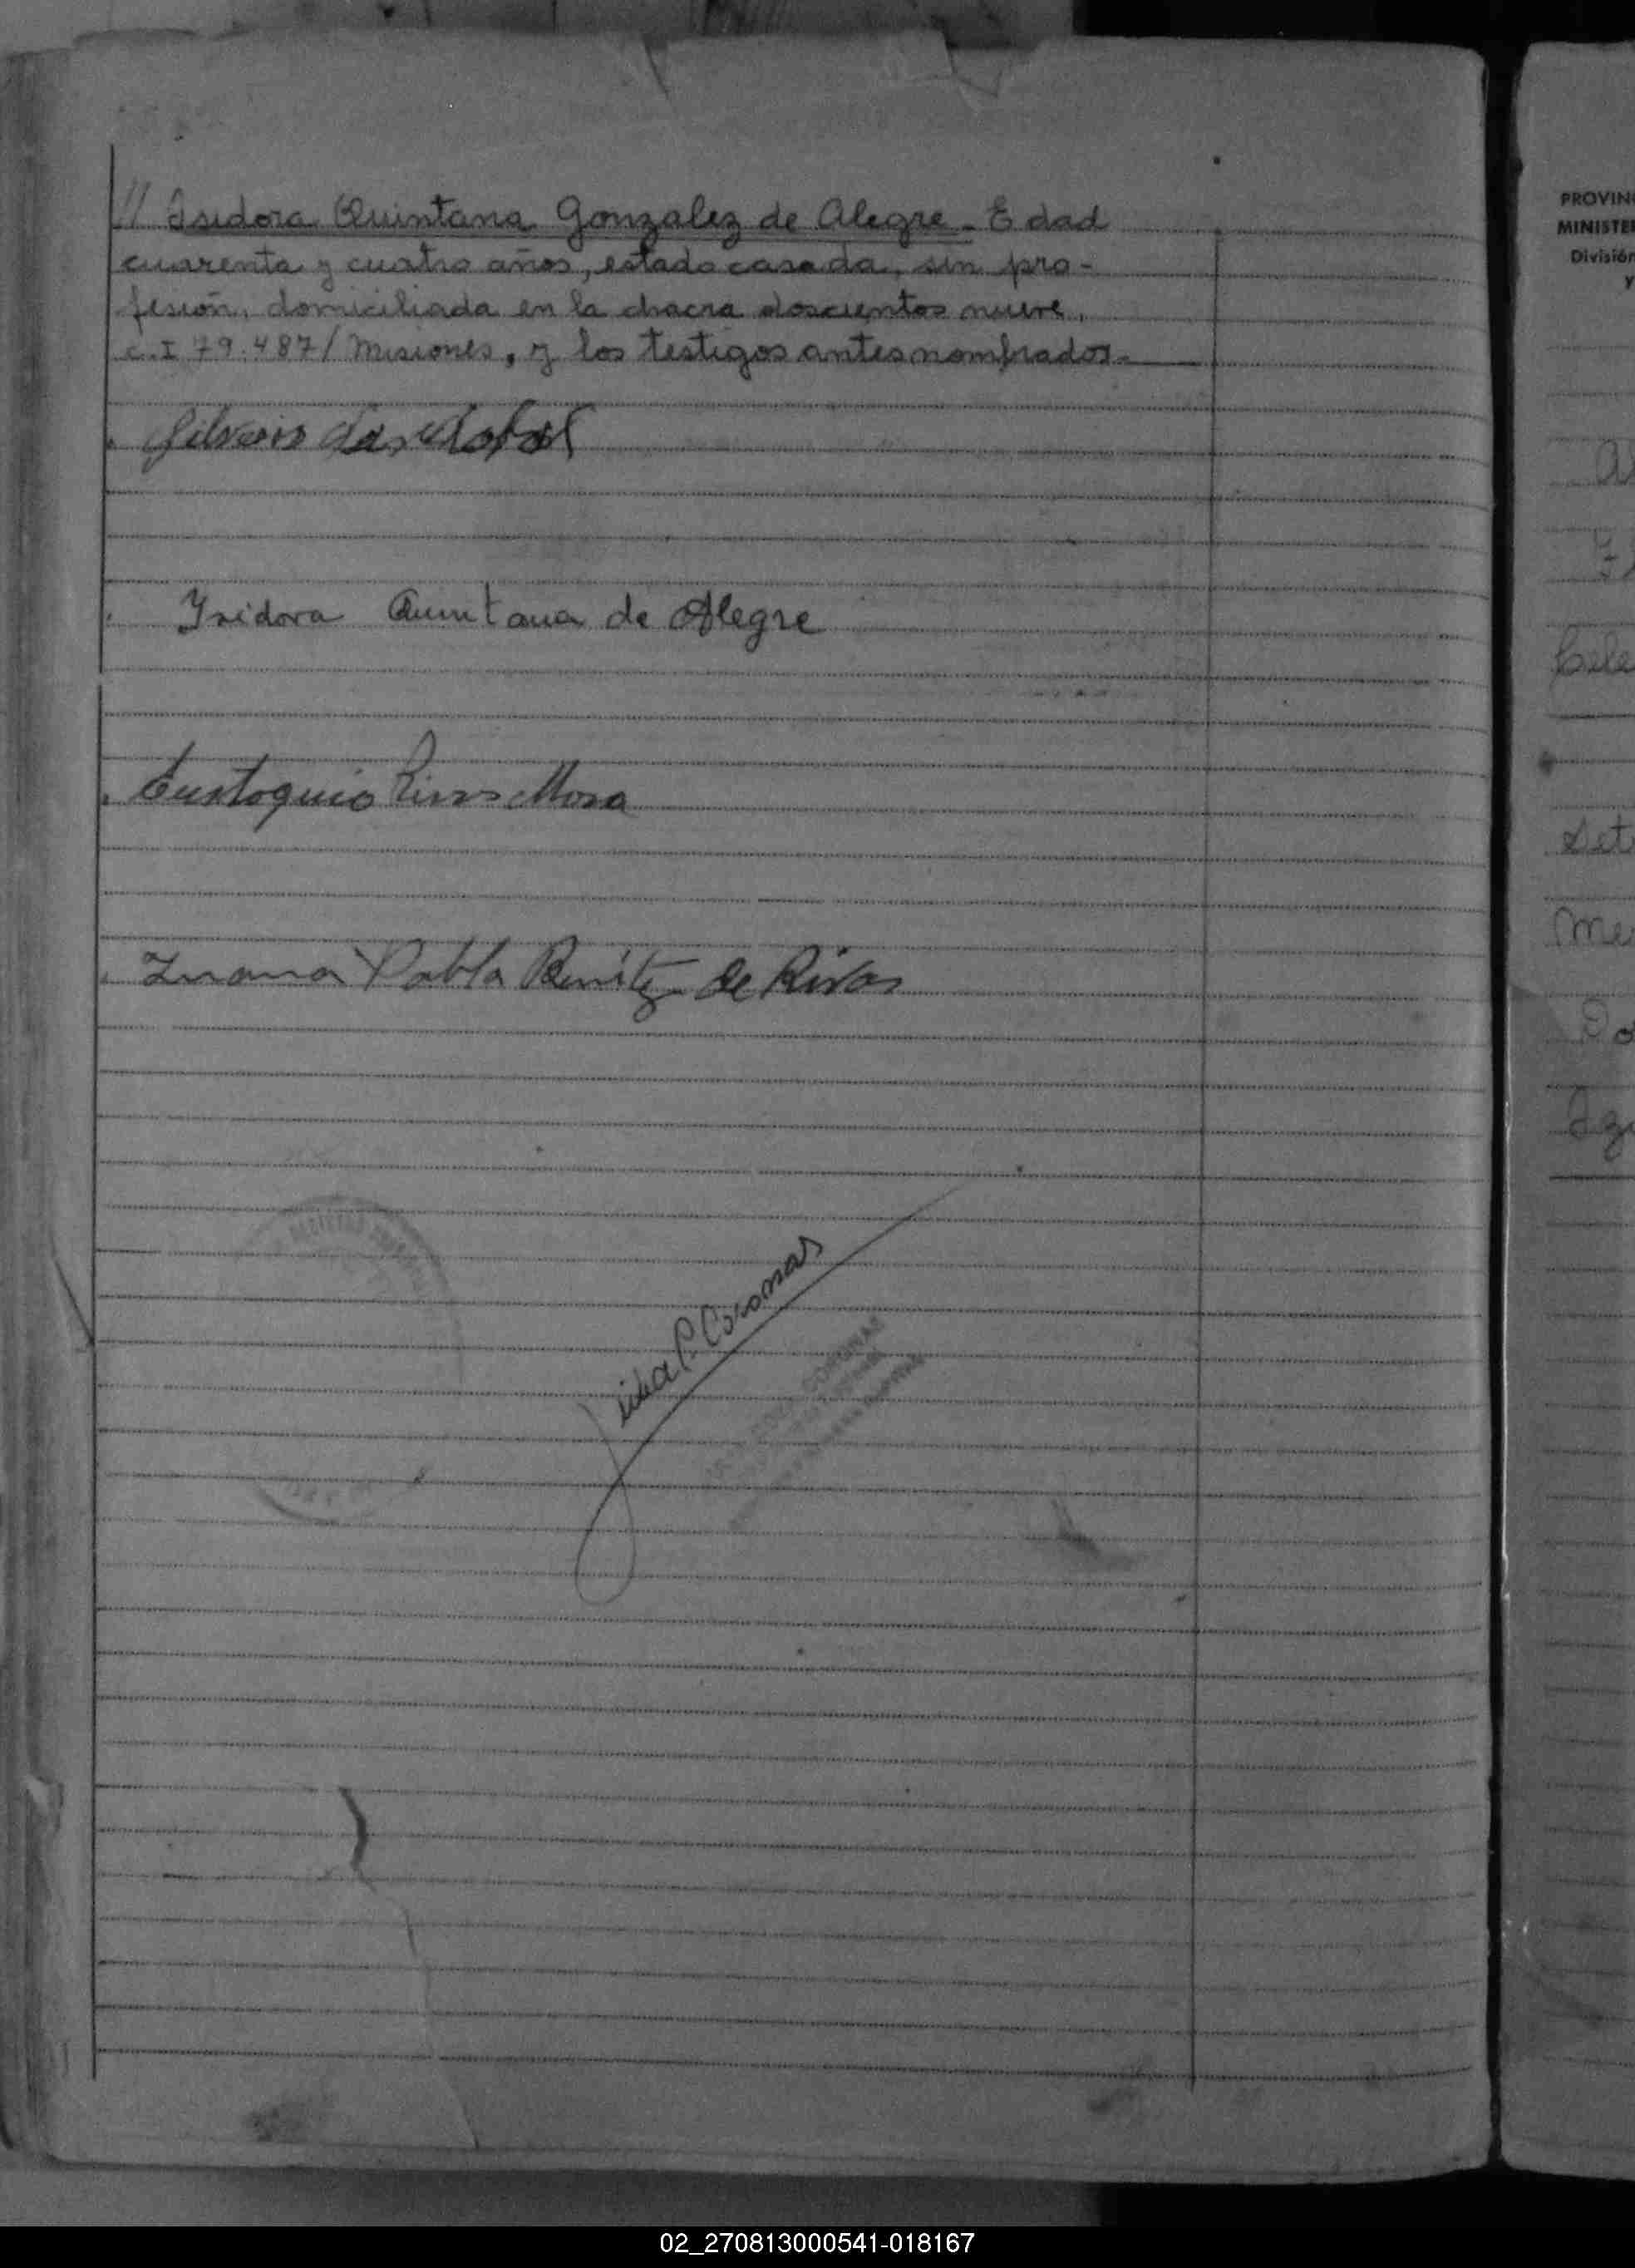 // Isidora Quintana Gonzalez de Alegre - Edad
cuarenta y cuatro años, estado casada, sin pro-
fesión, domiciliada en la chacra doscientos nueve,
c.I 79.487/ Misiones, y los testigos antes nombrados.-
Silverio Sandobal
Ysidora Quintana de Alegre
Eustaquio Rivas Mora
Juana Pabla Benítez de Rivas
C. Coronas
CORONAS
PROVIN
MINISTE
División
y
Cele
Set
Me
Do
02_270813000541-018167